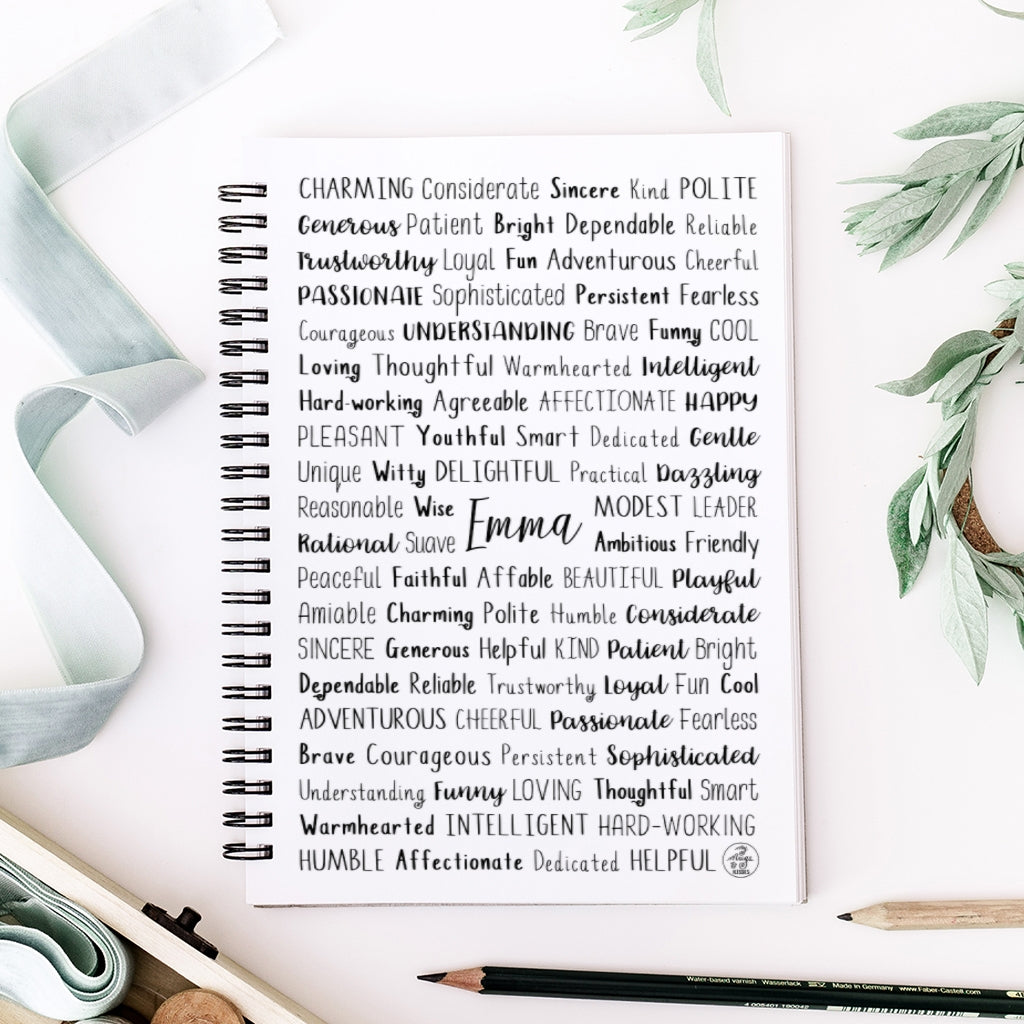 CHARMING Considerate Sincere Kind POLITE
Generous Patient Bright Dependable Reliable
Trustworthy Loyal Fun Adventurous Cheerful
PASSIONATE Sophisticated Persistent Fearless
Courageous UNDERSTANDING Brave Funny COOL
Loving Thoughtful Warmhearted Intelligent
Hard-working Agreeable AFFECTIONATE HAPPY
PLEASANT Youthful Smart Dedicated Gentle
Unique Witty DELIGHTFUL Practical Dazzling
Reasonable Wise MODEST LEADER
Emma
Rational Suave Ambitious Friendly
Peaceful Faithful Affable BEAUTIFUL Playful
Amiable Charming Polite Humble Considerate
SINCERE Generous Helpful KIND Patient Bright
Dependable Reliable Trustworthy Loyal Fun Cool
ADVENTUROUS CHEERFUL Passionate Fearless
Brave Courageous Persistent Sophisticated
Understanding Funny LOVING Thoughtful Smart
Warmhearted INTELLIGENT HARD-WORKING
HUMBLE Affectionate Dedicated HELPFUL
Water-based varnish Wasserlack Made in Germany www.Faber-Castell.com
4 005401 190042